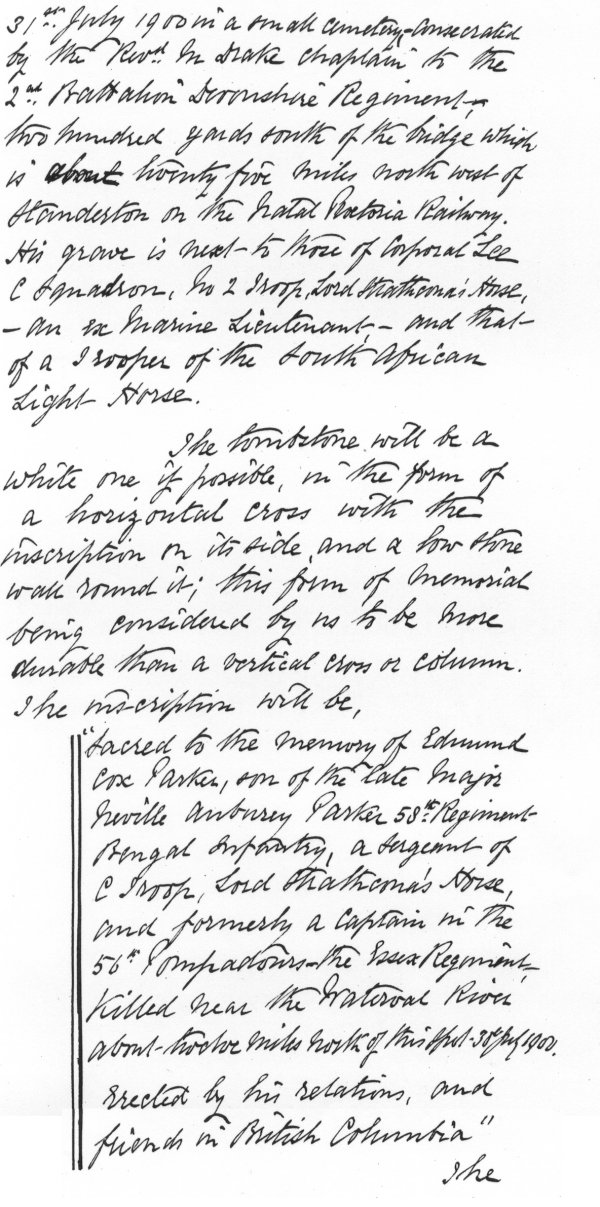 31st July 1900 in a small cemetery, consecrated
by the Revd. M Drake chaplain to the
2nd. Battalion Devonshire Regiment,
two hundred yards south of the bridge which
is about twenty five miles north west of
Standerton on the Natal Pretoria Railway.
His grave is next to those of Corporal Lee
C Squadron, No 2 Troop, Lord Strathcona's Horse,
- an ex Marine Lieutenant, - and that
of a Trooper of the South African
Light Horse.
The tombstone will be a
white one if possible, in the form of
a horizontal cross with the
inscription on its side, and a low stone
wall round it; this form of memorial
being considered by us to be more
durable than a vertical cross or column.
The inscription will be,
"Sacred to the memory of Edmund
Cox Parker, son of the late Major
Neville Anburey Parker 58th Regiment
Bengal Infantry, a sergeant of
C Troop, Lord Strathcona's Horse,
and formerly a Captain in the
56th Pompadours - the Essex Regiment,
Killed near the Waterval River
about twelve miles North of this spot - 30th July 1900.
Erected by his relations, and
friends in British Columbia"
The